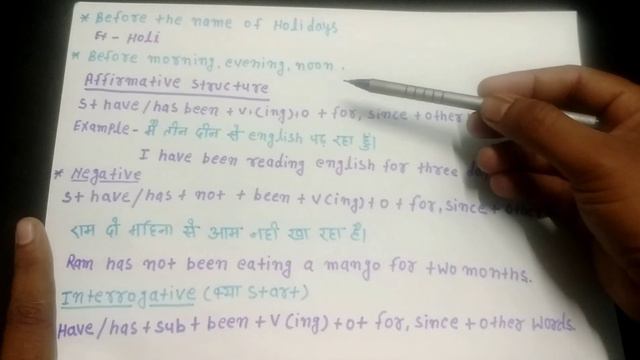 * Before the name of Holidays
Et - Holi
* Before morning, evening, noon.
Affirmative structure
S+ have/has been + v₁(ing)+o + for, since + other
Example - मैं तीन दीन से english पढ़ रहा हुँ।
I have been reading english for three
* Negative
S+ have/has + not + been + v(ing)+o + for, since + other
राम दो महिना से आम नहीं खा रहा है।
Ram has not been eating a mango for two months.
Interrogative (क्या start)
Have/has + sub + been + v(ing) + o + for, since + other words.